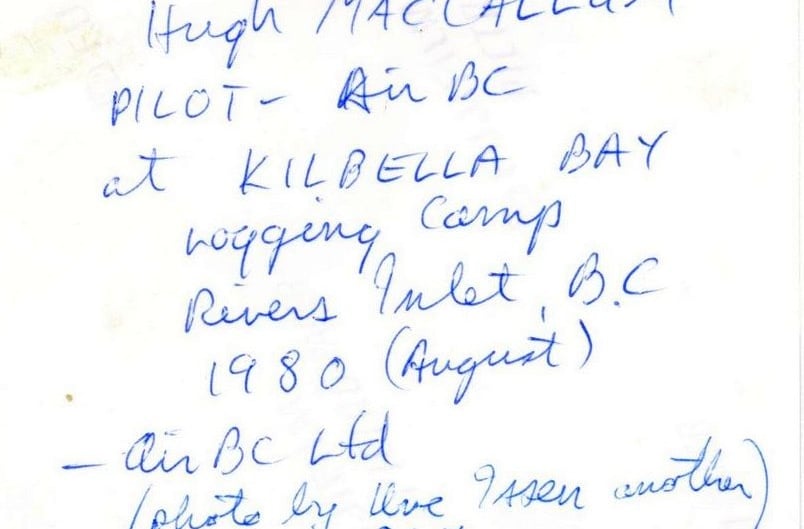 Hugh MACCALLUM
PILOT - Air BC
at KILBELLA BAY
Logging Camp
Rivers Inlet, B.C
1980 (August)
- Air BC Ltd
(photo by Uwe Issen another)